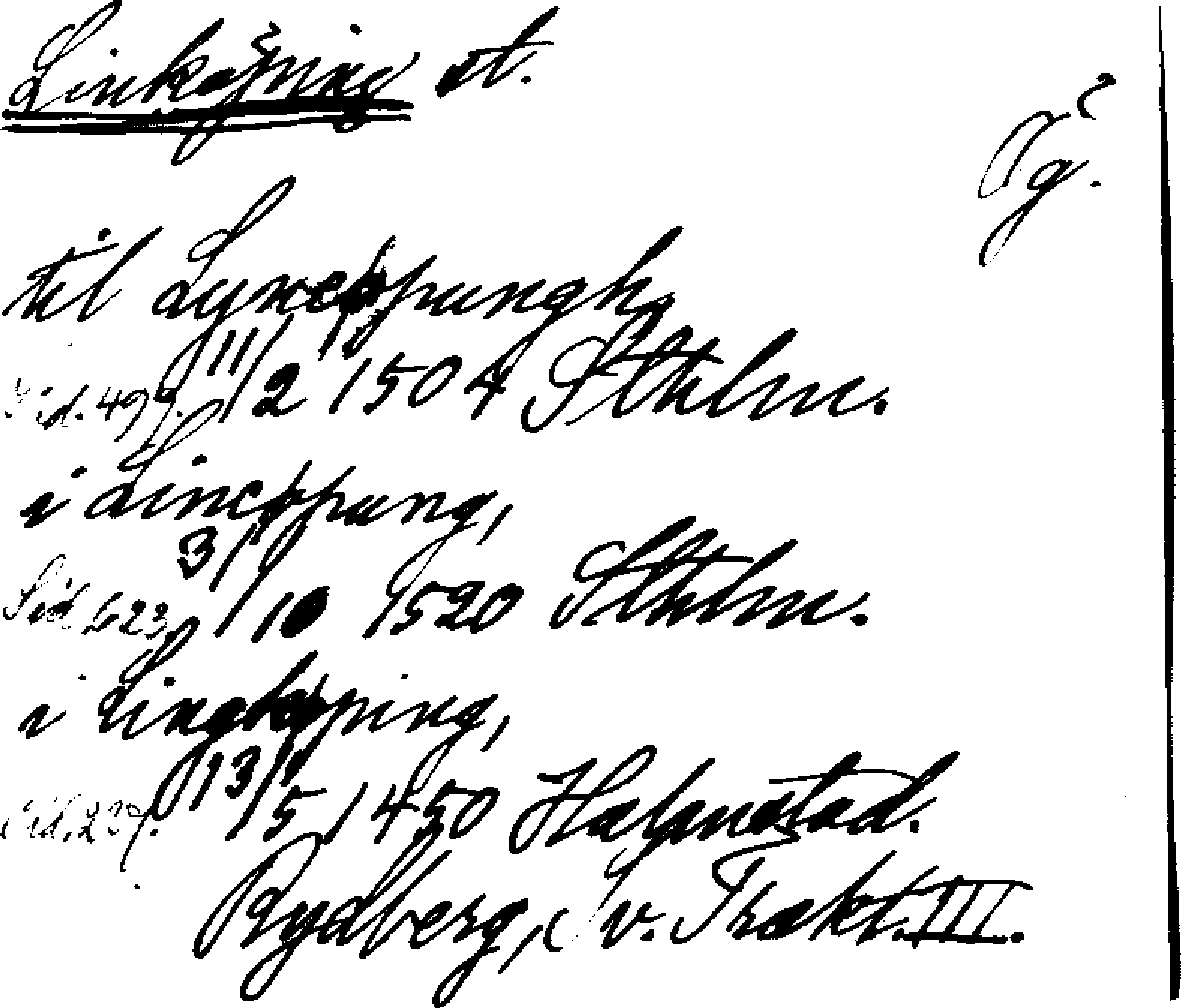 Linköping st.
Ög.
til Lyncøpungh,
Sid. 499. 11/2 1504 Sthlm.
i Lincøpung,
Sid. 623, 3/10 1520 Sthlm.
i Lingkøping,
Sid. 237. 13/5 1450 Halmstad.
Rydberg, Sv. Trakt. III.